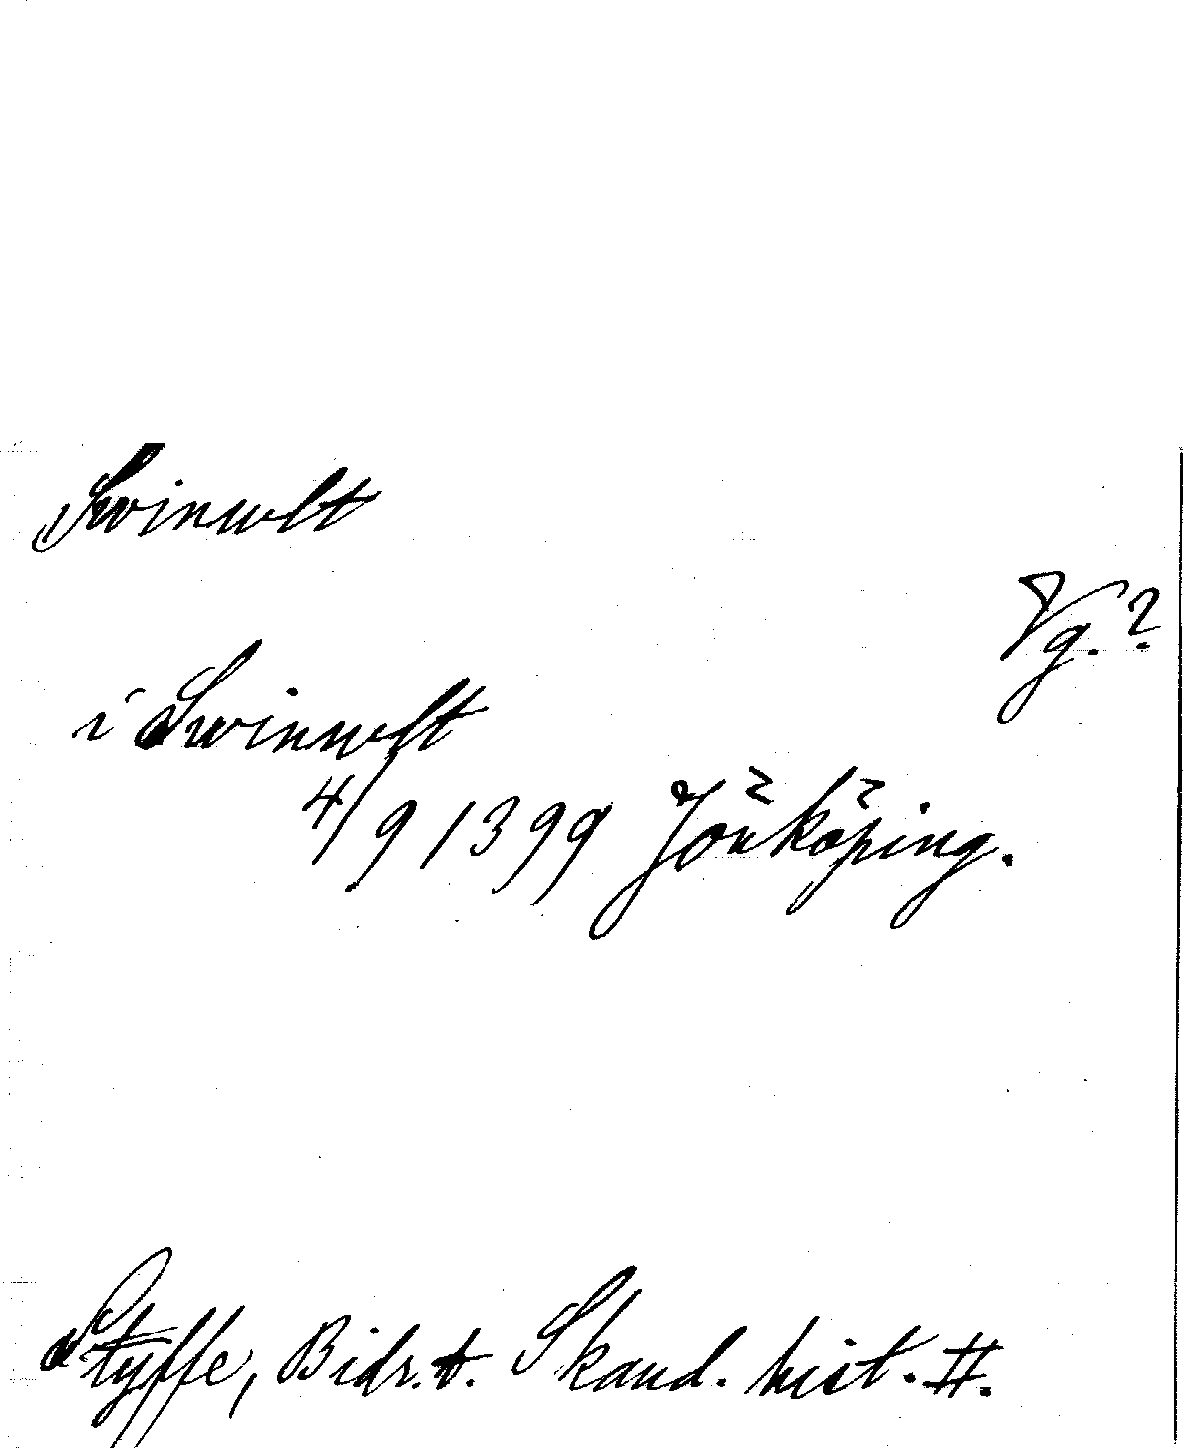 Swinwlt
Vg.?
i Swinwlt
4/9 1399 Jönköping.
Styffe, Bidr. t. Skand. hist. II.